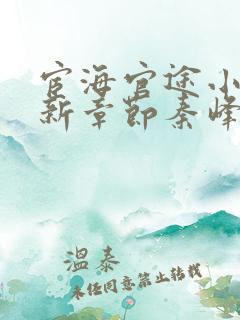 宦海官途小
新章节秦峰
温泰
未经同意禁止转载